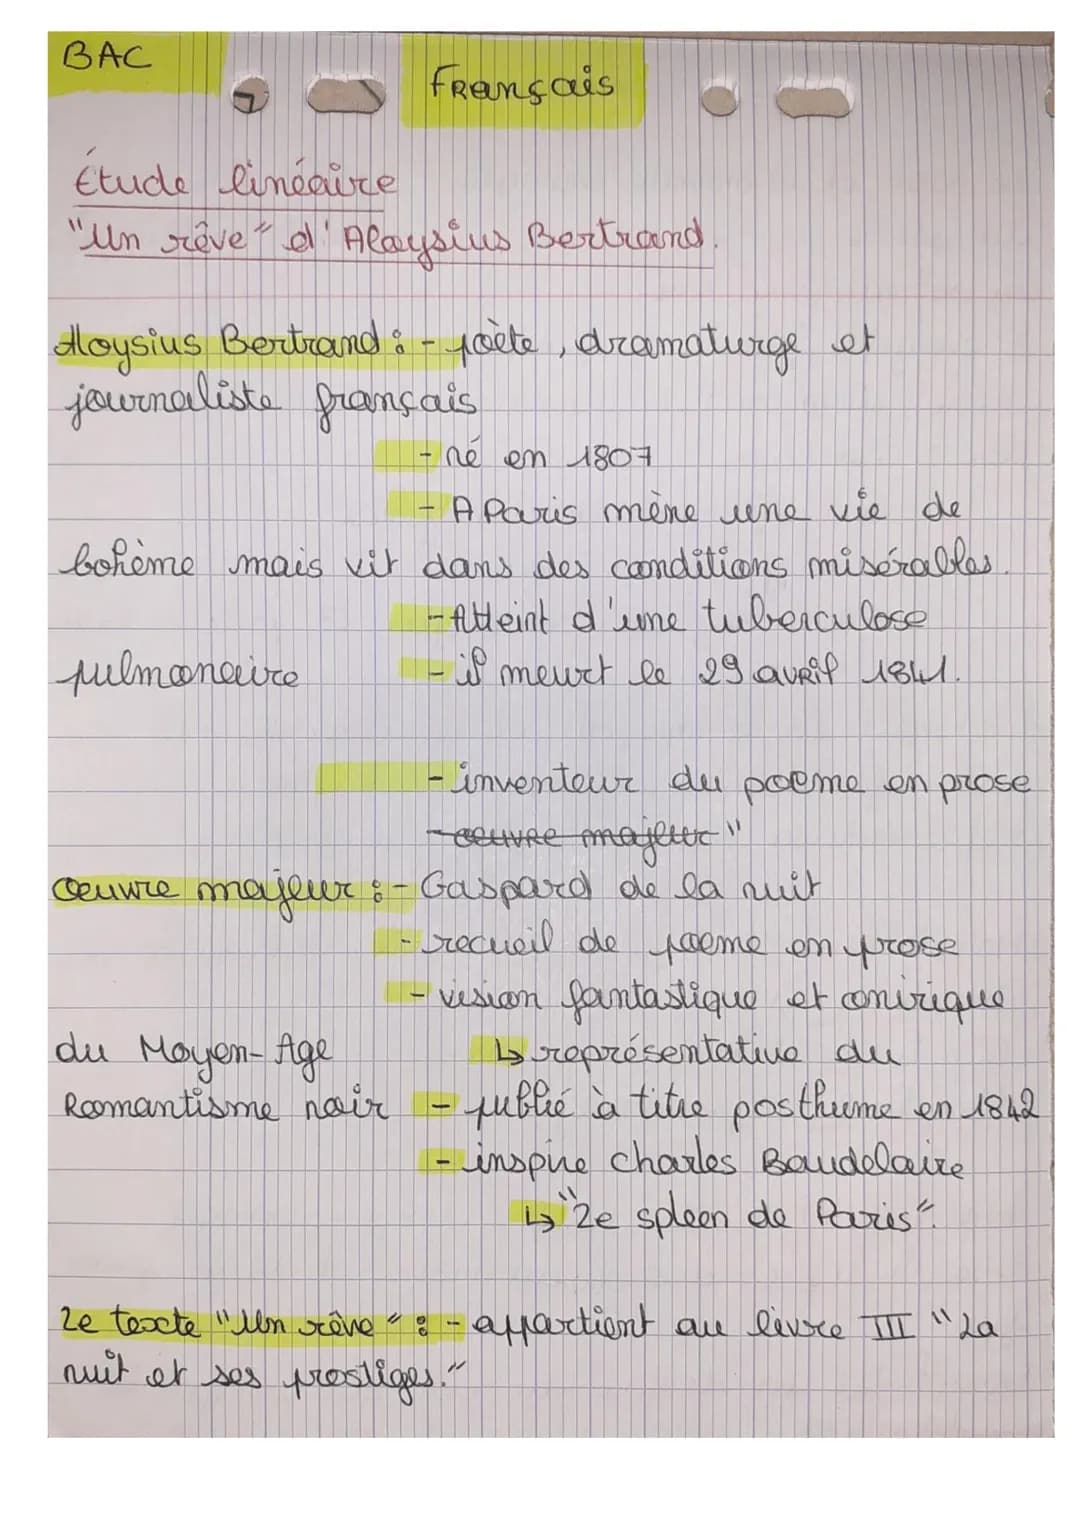 BAC
Français
Étude linéaire
"Un rêve" d'Aloysius Bertrand.
Aloysius Bertrand : - poète, dramaturge et
journaliste français
- né en 1807
- A Paris mène une vie de
bohème mais vit dans des conditions misérables.
- Atteint d'une tuberculose
pulmonaire - il meurt le 29 avril 1841.
- inventeur du poeme en prose
- oeuvre majeur "
œuvre majeur : - Gaspard de la nuit
- recueil de poeme en prose
- vision fantastique et onirique
du Moyen-Age ↳ représentative du
Romantisme noir - publié à titre posthume en 1842
- inspire Charles Baudelaire
↳ "Le spleen de Paris".
Le texte "Un rêve" : - appartient au livre III "La
nuit et ses prestiges."